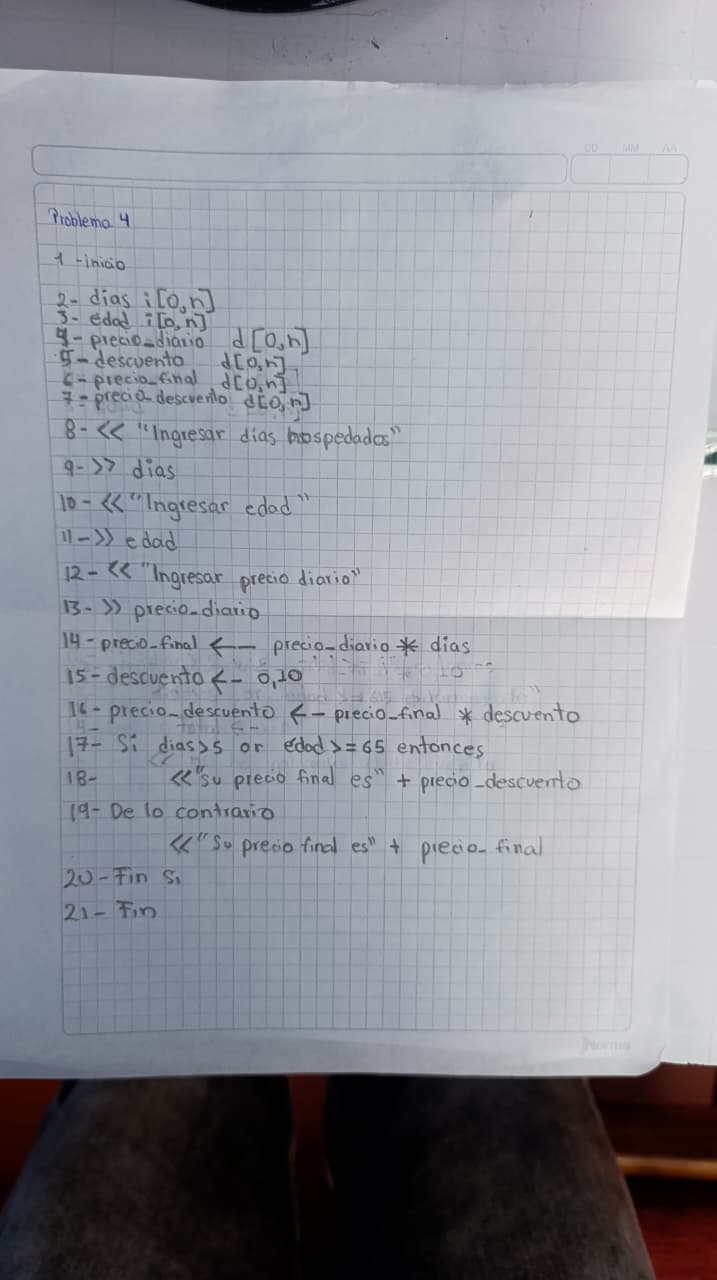 DD MM AA
Problema 4
1-inicio
2- dias i[0,n]
3- edad i[0,n]
4- precio_diario d[0,n]
5- descuento d[0,n]
6- precio_final d[0,n]
7- precio_descuento d[0,n]
8- << "Ingresar dias hospedados"
9- >> dias
10- << "Ingresar edad"
11- >> edad
12- << "Ingresar precio diario"
13- >> precio_diario
14- precio_final <- precio_diario * dias
15- descuento <- 0,10
16- precio_descuento <- precio_final * descuento
17- Si dias>5 or edad >= 65 entonces
18- << "su precio final es" + precio_descuento
19- De lo contrario
<< "Su precio final es" + precio_final
20- Fin Si
21- Fin
Norma